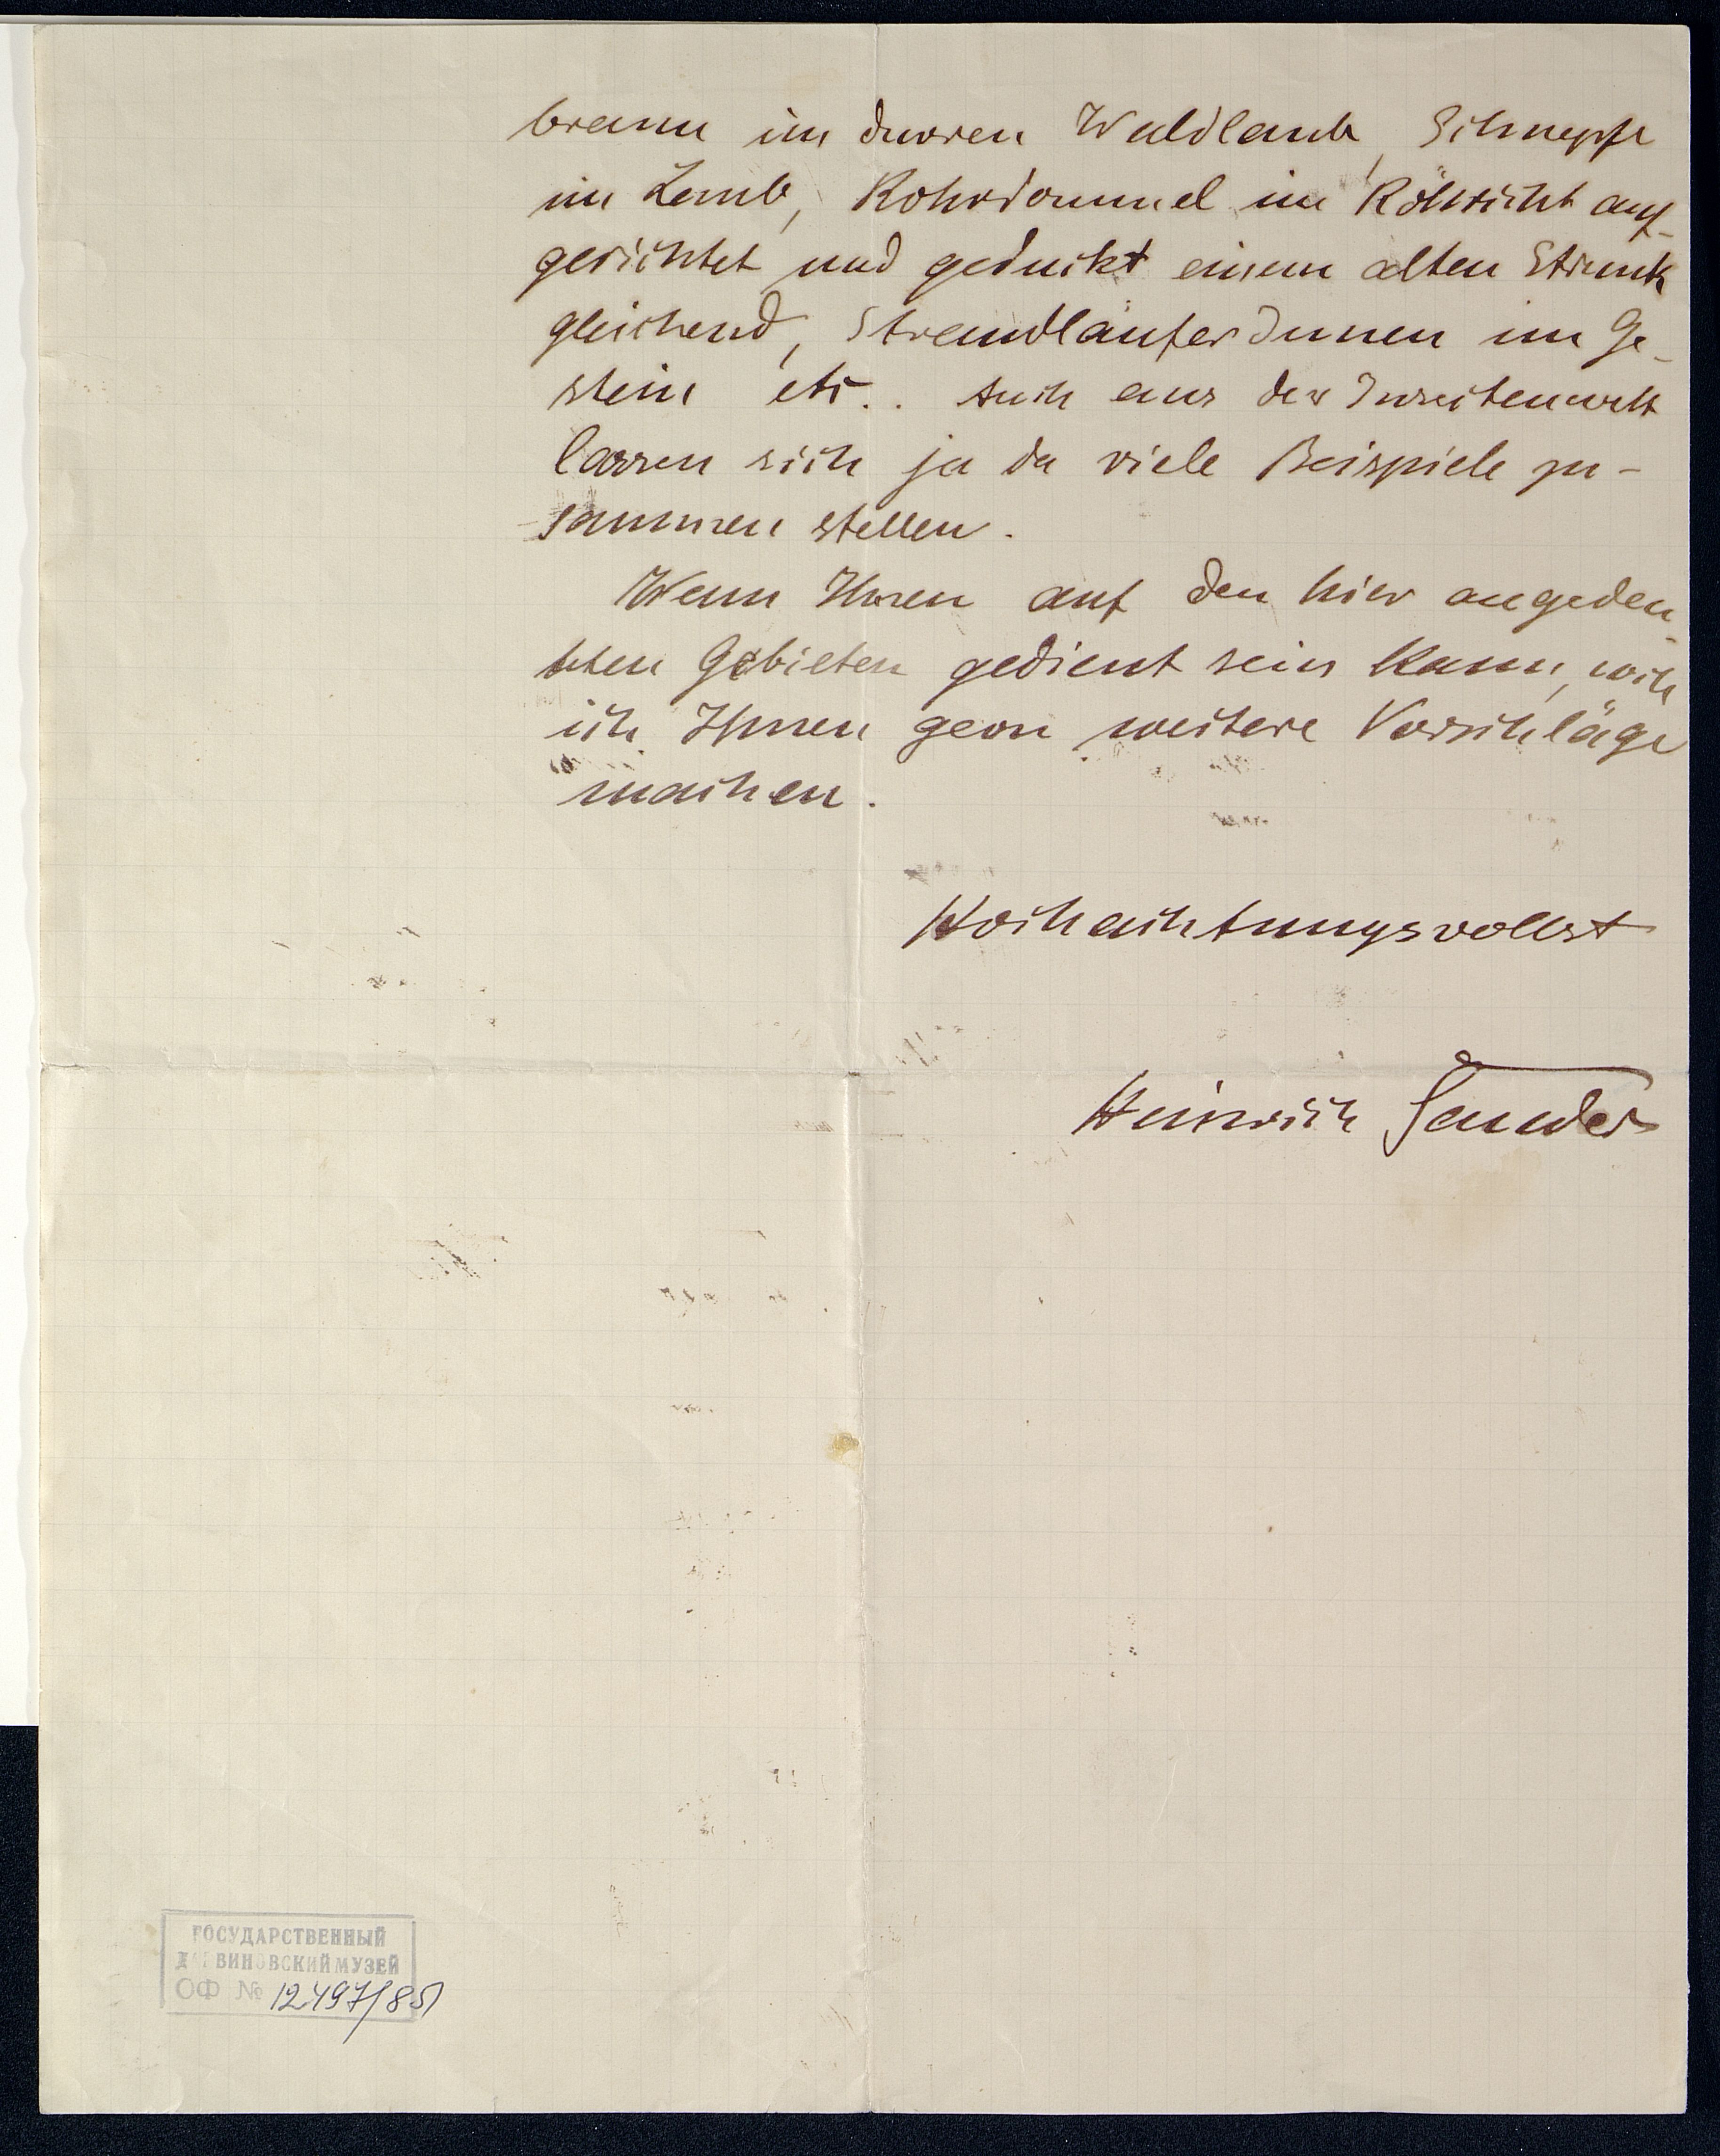 braun im dürren Waldlaub, Schnepfe
im Laub, Rohrdommel im Röhricht auf-
gerichtet und geduckt einem alten Strunk
gleichend, Strandläufer Dunen im Ge-
stein etc.. Auch aus der Insectenwelt
lassen sich ja da viele Beispiele zu-
sammen stellen.
Wenn Ihnen auf den hier angedeu-
teten Gebieten gedient sein kann, will
ich Ihnen gern weitere Vorschläge
machen.
Hochachtungsvollst
Heinrich Sander
ГОСУДАРСТВЕННЫЙ
ДАРВИНОВСКИЙ МУЗЕЙ
ОФ № 12497/851